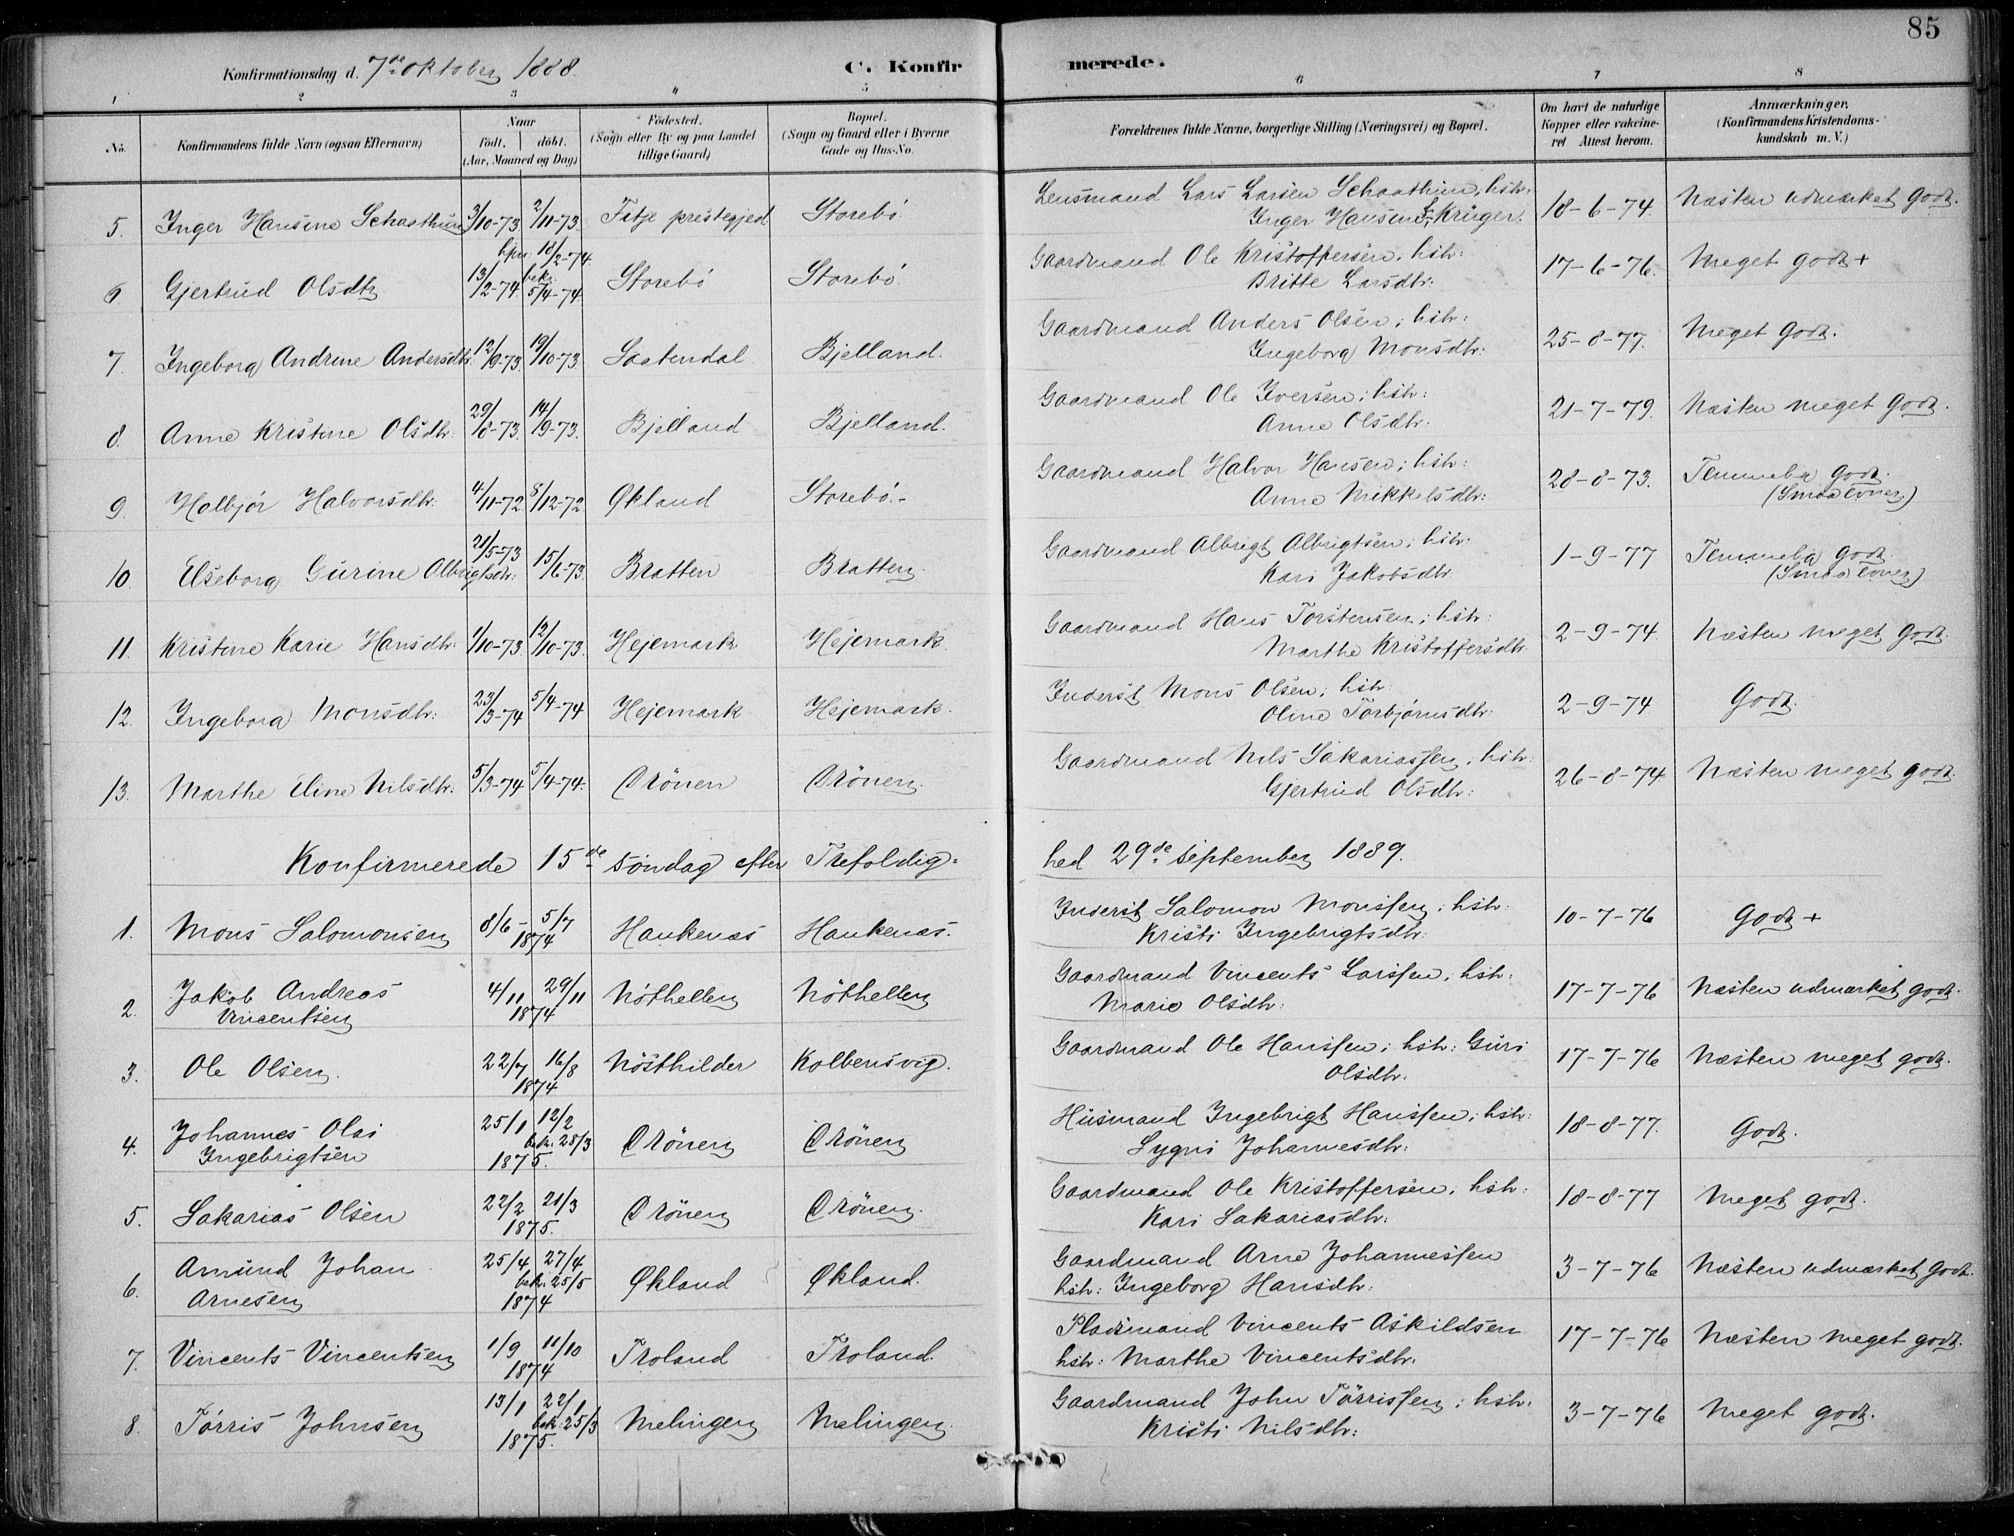 85
Konfirmationsdag d. 7de oktober 1888.
C. Konfirmerede.
1 2 3 4 5 6 7 8
No. Konfirmandens fulde Navn (ogsaa Efternavn) Naar født. døbt. (Aar, Maaned og Dag) Fødested. (Sogn eller By og paa Landet tillige Gaard) Bopæl. (Sogn og Gaard eller i Byerne Gade og Hus-No. Forældrenes fulde Navne, borgerlige Stilling (Næringsvei) og Bopæl. Om havt de naturlige Kopper eller vakcineret Attest herom. Anmærkninger. (Konfirmandens Kristendomskundskab m. V.)
5. Inger Hansine Schaathun 3/10-73 2/11-73 Fitje prestegjed Storebø Lensmand Lars Larsen Schaathun, hstr: Inger Hansine f. Krüger. 18-6-74. Næsten udmærket godt.
6 Gjertrud Olsdtr 13/2-74 hjm. 18/2-74. bekr. 5/4-74. Storebø Storebø. Gaardmand Ole Kristoffersen, hstr: Britte Larsdtr: 17-6-76. Meget godt +
7. Ingeborg Andrine Andersdtr. 12/9-73. 19/10-73 Saatendal Bjelland. Gaardmand Anders Olsen; hstr: Ingeborg Monsdtr: 25-8-77. Meget godt.
8. Anne Kristine Olsdtr. 29/8-73. 14/9-73. Bjelland Bjelland. Gaardmand Ole Iversen; hstr: Anne Olsdtr: 21-7-79. Næsten meget godt.
9. Holbjør Halvorsdtr. 4/11-72 8/12-72 Økland Storebø.- Gaardmand Halvor Hansen; hstr: Anne Mikkelsdtr: 28-8-73. Temmelig godt. (Smaa evner)
10 Elseborg Gurine Albrigtsdtr: 21/5-73 15/6-73. Bratten Bratten. Gaardmand Albrigt Albrigtsen; hstr: Kari Jakobsdtr. 1-9-77 Temmelig godt. (Smaa evner)
11. Kristine Karie Hansdtr: 1/10-73 12/10-73. Hejemark Hejemark. Gaardmand Hans Torstensen; hstr: Marthe Kristoffersdtr. 2-9-74. Næsten meget godt.
12. Ingeborg Monsdtr: 23/3-74 5/4-74 Hejemark Hejemark. Inderst Mons Olsen; hstr: Oline Torbjørnsdtr: 2-9-74 Godt.
13. Marthe Eline Nilsdtr: 5/3-74 5/4-74. Drönen Drönen. Gaardmand Nils Sakariassen, hstr: Gjertrud Olsdtr: 26-8-74 Næsten meget godt.
Konfirmerede 15de søndag efter Trefoldighed 29de september 1889.
1. Mons Salomonsen 8/6- 5/7 1874 Haukenæs Haukenæs. Inderst Salomon Monssen; hstr: Kristi Ingebrigtsdtr: 10-7-76 Godt +
2. Jakob Andreas Vincentsen 4/11 29/11 1874 Nöthellen Nöthellen Gaardmand Vincents Larssen, hstr: Marie Olsdtr: 17-7-76 Næsten udmærket godt.
3. Ole Olsen. 22/7 16/8 1874 Nösthilder Kolbensvig. Gaardmand Ole Hanssen; hstr: Guri Olsdtr. 17-7-76 Næsten meget godt.
4. Johannes Olai Ingebrigtsen 25/1 12/2 bek. 28/3 1875. Drönen Drönen Husmand Ingebrigt Hanssen; hstr: Sygni Johannesdtr: 18-8-77. Godt.
5. Sakarias Olsen 22/2 21/3 1875. Drönen Drönen. Gaardmand Ole Kristoffersen, hstr: Kari Sakariasdtr: 18-8-77 Meget godt.
6. Amund Johan Arnesen 25/4 27/4 bek. 25/5 1874 Økland Økland. Gaardmand Arne Johannessen hstr: Ingeborg Hansdtr: 3-7-76 Næsten udmærket godt.
7. Vincents Vincentsen 1/9 11/10 1874 Troland Troland. Pladsmand Vincents Askildsen hstr: Marthe Vincentsdtr. 17-7-76 Næsten meget godt.
8. Törris Johnsen 13/1 22/1 bek. 25/3 1875. Melingen Melingen. Gaardmand John Törrissen; hstr: Kristi Nilsdtr: 3-7-76 Meget godt.